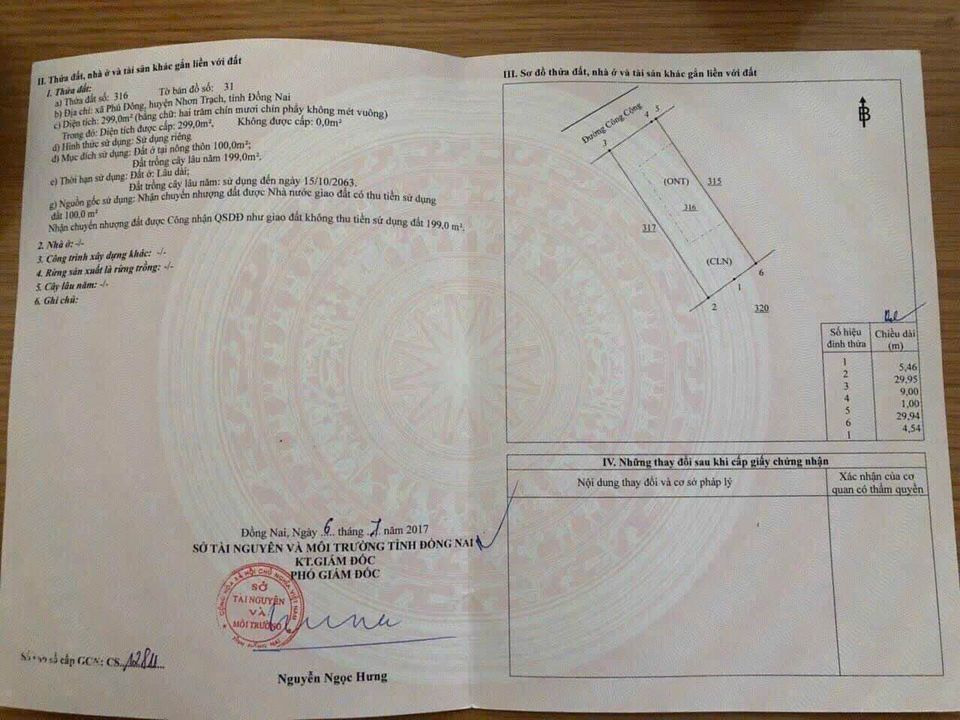 II. Thửa đất, nhà ở và tài sản khác gắn liền với đất
1. Thửa đất:
a) Thửa đất số: 316 Tờ bản đồ số: 31
b) Địa chỉ: xã Phú Đông, huyện Nhơn Trạch, tỉnh Đồng Nai
c) Diện tích: 299,0m² (bằng chữ: hai trăm chín mươi chín phẩy không mét vuông)
Trong đó: Diện tích được cấp: 299,0m², Không được cấp: 0,0m²
d) Hình thức sử dụng: Sử dụng riêng
đ) Mục đích sử dụng: Đất ở tại nông thôn 100,0m²;
Đất trồng cây lâu năm 199,0m².
e) Thời hạn sử dụng: Đất ở: Lâu dài;
Đất trồng cây lâu năm: sử dụng đến ngày 15/10/2063.
g) Nguồn gốc sử dụng: Nhận chuyển nhượng đất được Nhà nước giao đất có thu tiền sử dụng
đất 100,0 m²
Nhận chuyển nhượng đất được Công nhận QSDĐ như giao đất không thu tiền sử dụng đất 199,0 m².
2. Nhà ở: -/-
3. Công trình xây dựng khác: -/-
4. Rừng sản xuất là rừng trồng: -/-
5. Cây lâu năm: -/-
6. Ghi chú:
Đồng Nai, Ngày 6 tháng 7 năm 2017
SỞ TÀI NGUYÊN VÀ MÔI TRƯỜNG TỈNH ĐỒNG NAI
KT.GIÁM ĐỐC
PHÓ GIÁM ĐỐC
CỘNG HÒA XÃ HỘI CHỦ NGHĨA VIỆT NAM
SỞ
TÀI NGUYÊN
VÀ
MÔI TRƯỜNG
TỈNH ĐỒNG NAI
Nguyễn Ngọc Hưng
Số vào sổ cấp GCN: CS
III. Sơ đồ thửa đất, nhà ở và tài sản khác gắn liền với đất
B
Đường Công Cộng
3
4
5
(ONT)
315
316
317
(CLN)
6
1
2
320
Số hiệu đỉnh thửa
Chiều dài (m)
1
5,46
2
29,95
3
9,00
4
1,00
5
29,94
6
4,54
1
IV. Những thay đổi sau khi cấp giấy chứng nhận
Nội dung thay đổi và cơ sở pháp lý
Xác nhận của cơ
quan có thẩm quyền